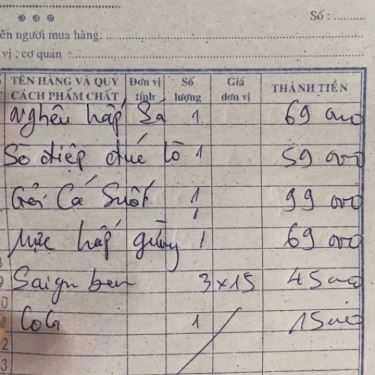 Số : ..........
ên người mua hàng: ..........
vị , cơ quan : ..........
TÊN HÀNG VÀ QUY CÁCH PHẨM CHẤT Đơn vị tính Số lượng Giá đơn vị THÀNH TIỀN
Nghêu hấp Sả 1 69 000
Sò điệp đút lò 1 59 000
Gỏi Cá Suốt 1 99 000
Mực hấp gừng 1 69 000
Saigon beer 3 x 15 45 000
10 Coca 1 15 000
2
3